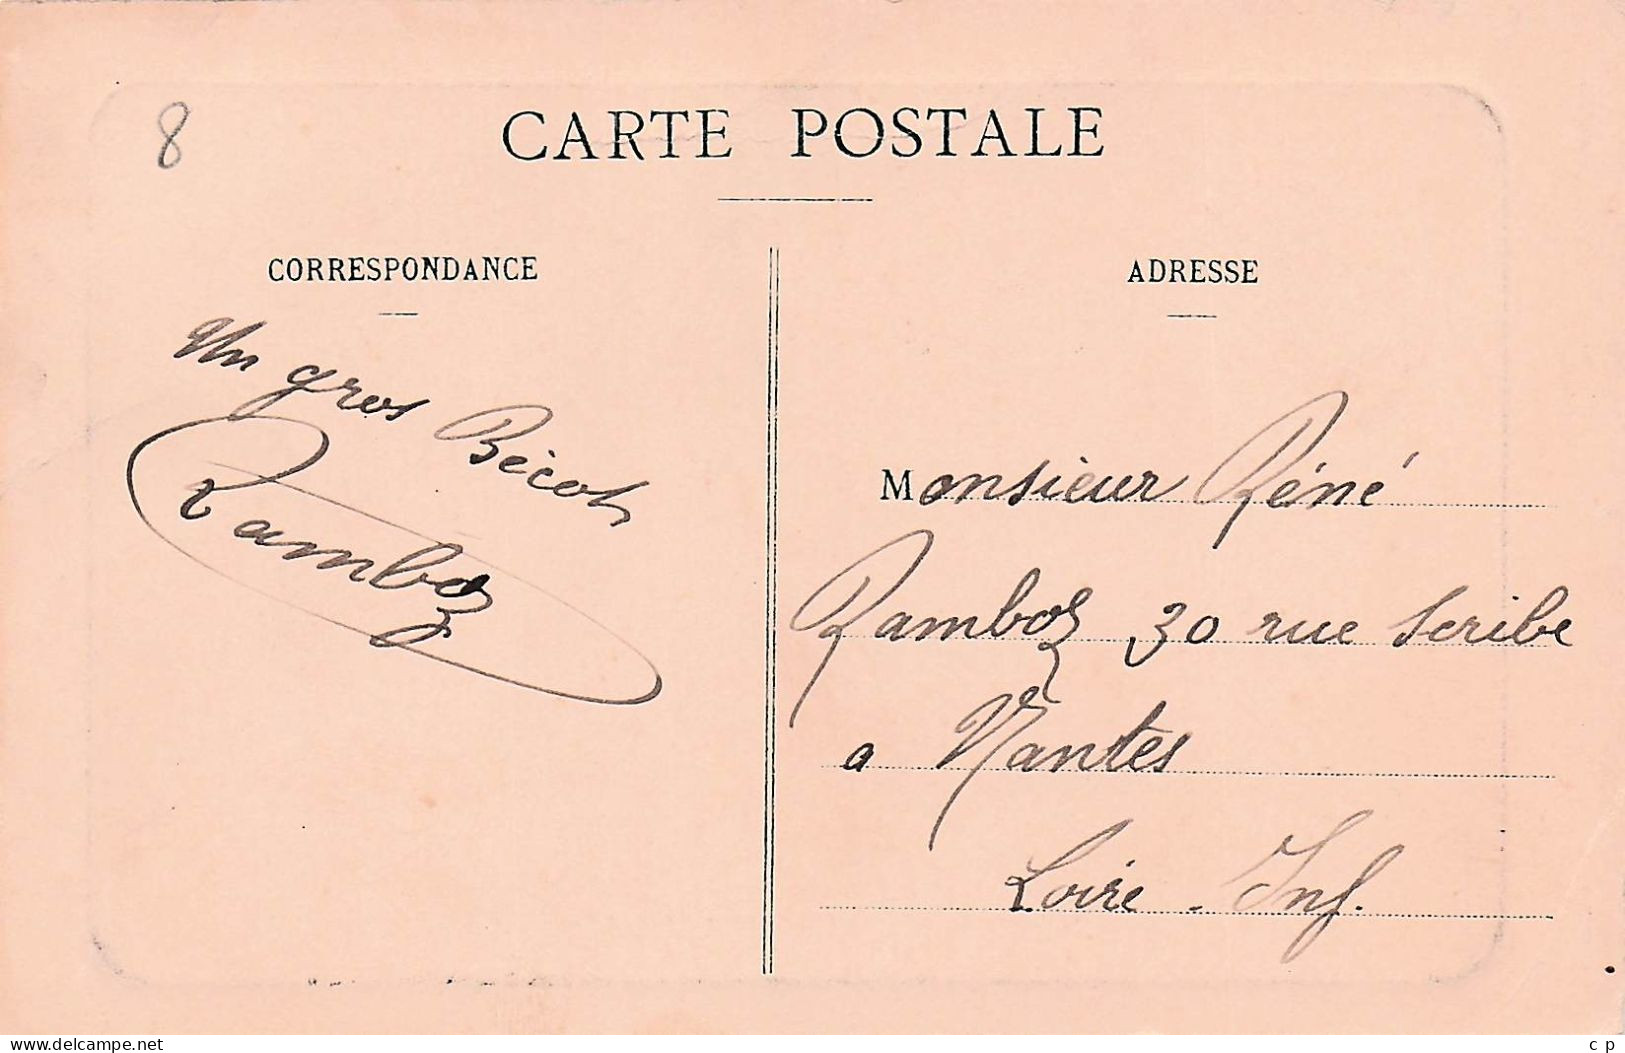 8
CARTE POSTALE
CORRESPONDANCE
Un gros Bécot
Ramboz
ADRESSE
Monsieur Réné
Ramboz 30 rue Scribe
a Nantes
Loire - Inf.
www.delcampe.net
c p